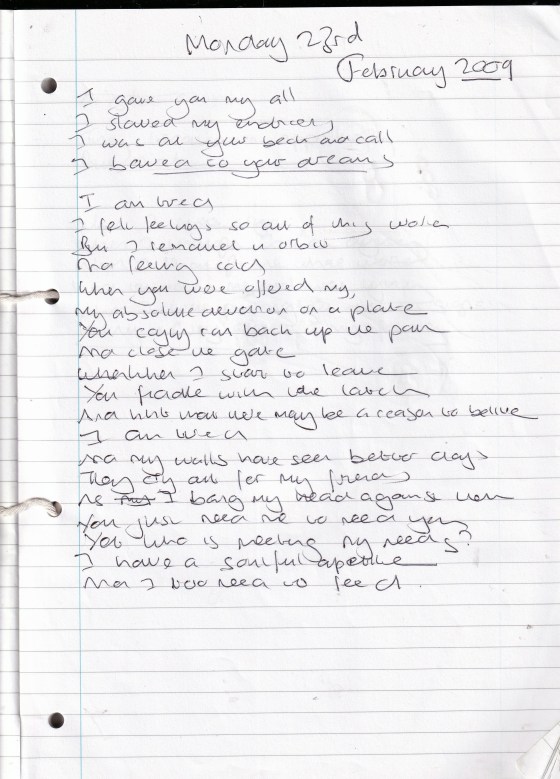 Monday 23rd
February 2009
I gave you my all
I slaved my endlessly
I was at your beck and call
I bowed to your dreams
I am tired
I felt feelings so out of this world
But I remained in orbit
And feeling cold
When you were offered my,
my absolute devotion on a plate
You ran back up the path
And close the gate
I start to leave
You fiddle with the latch
And hint that there may be a reason to believe
I am tired
And my walls have seen better days
They cry out for my friends
As I bang my head against them
You just need me to need you
You who is meeting my needs?
I have a soulful appetite
And I too need to feed.